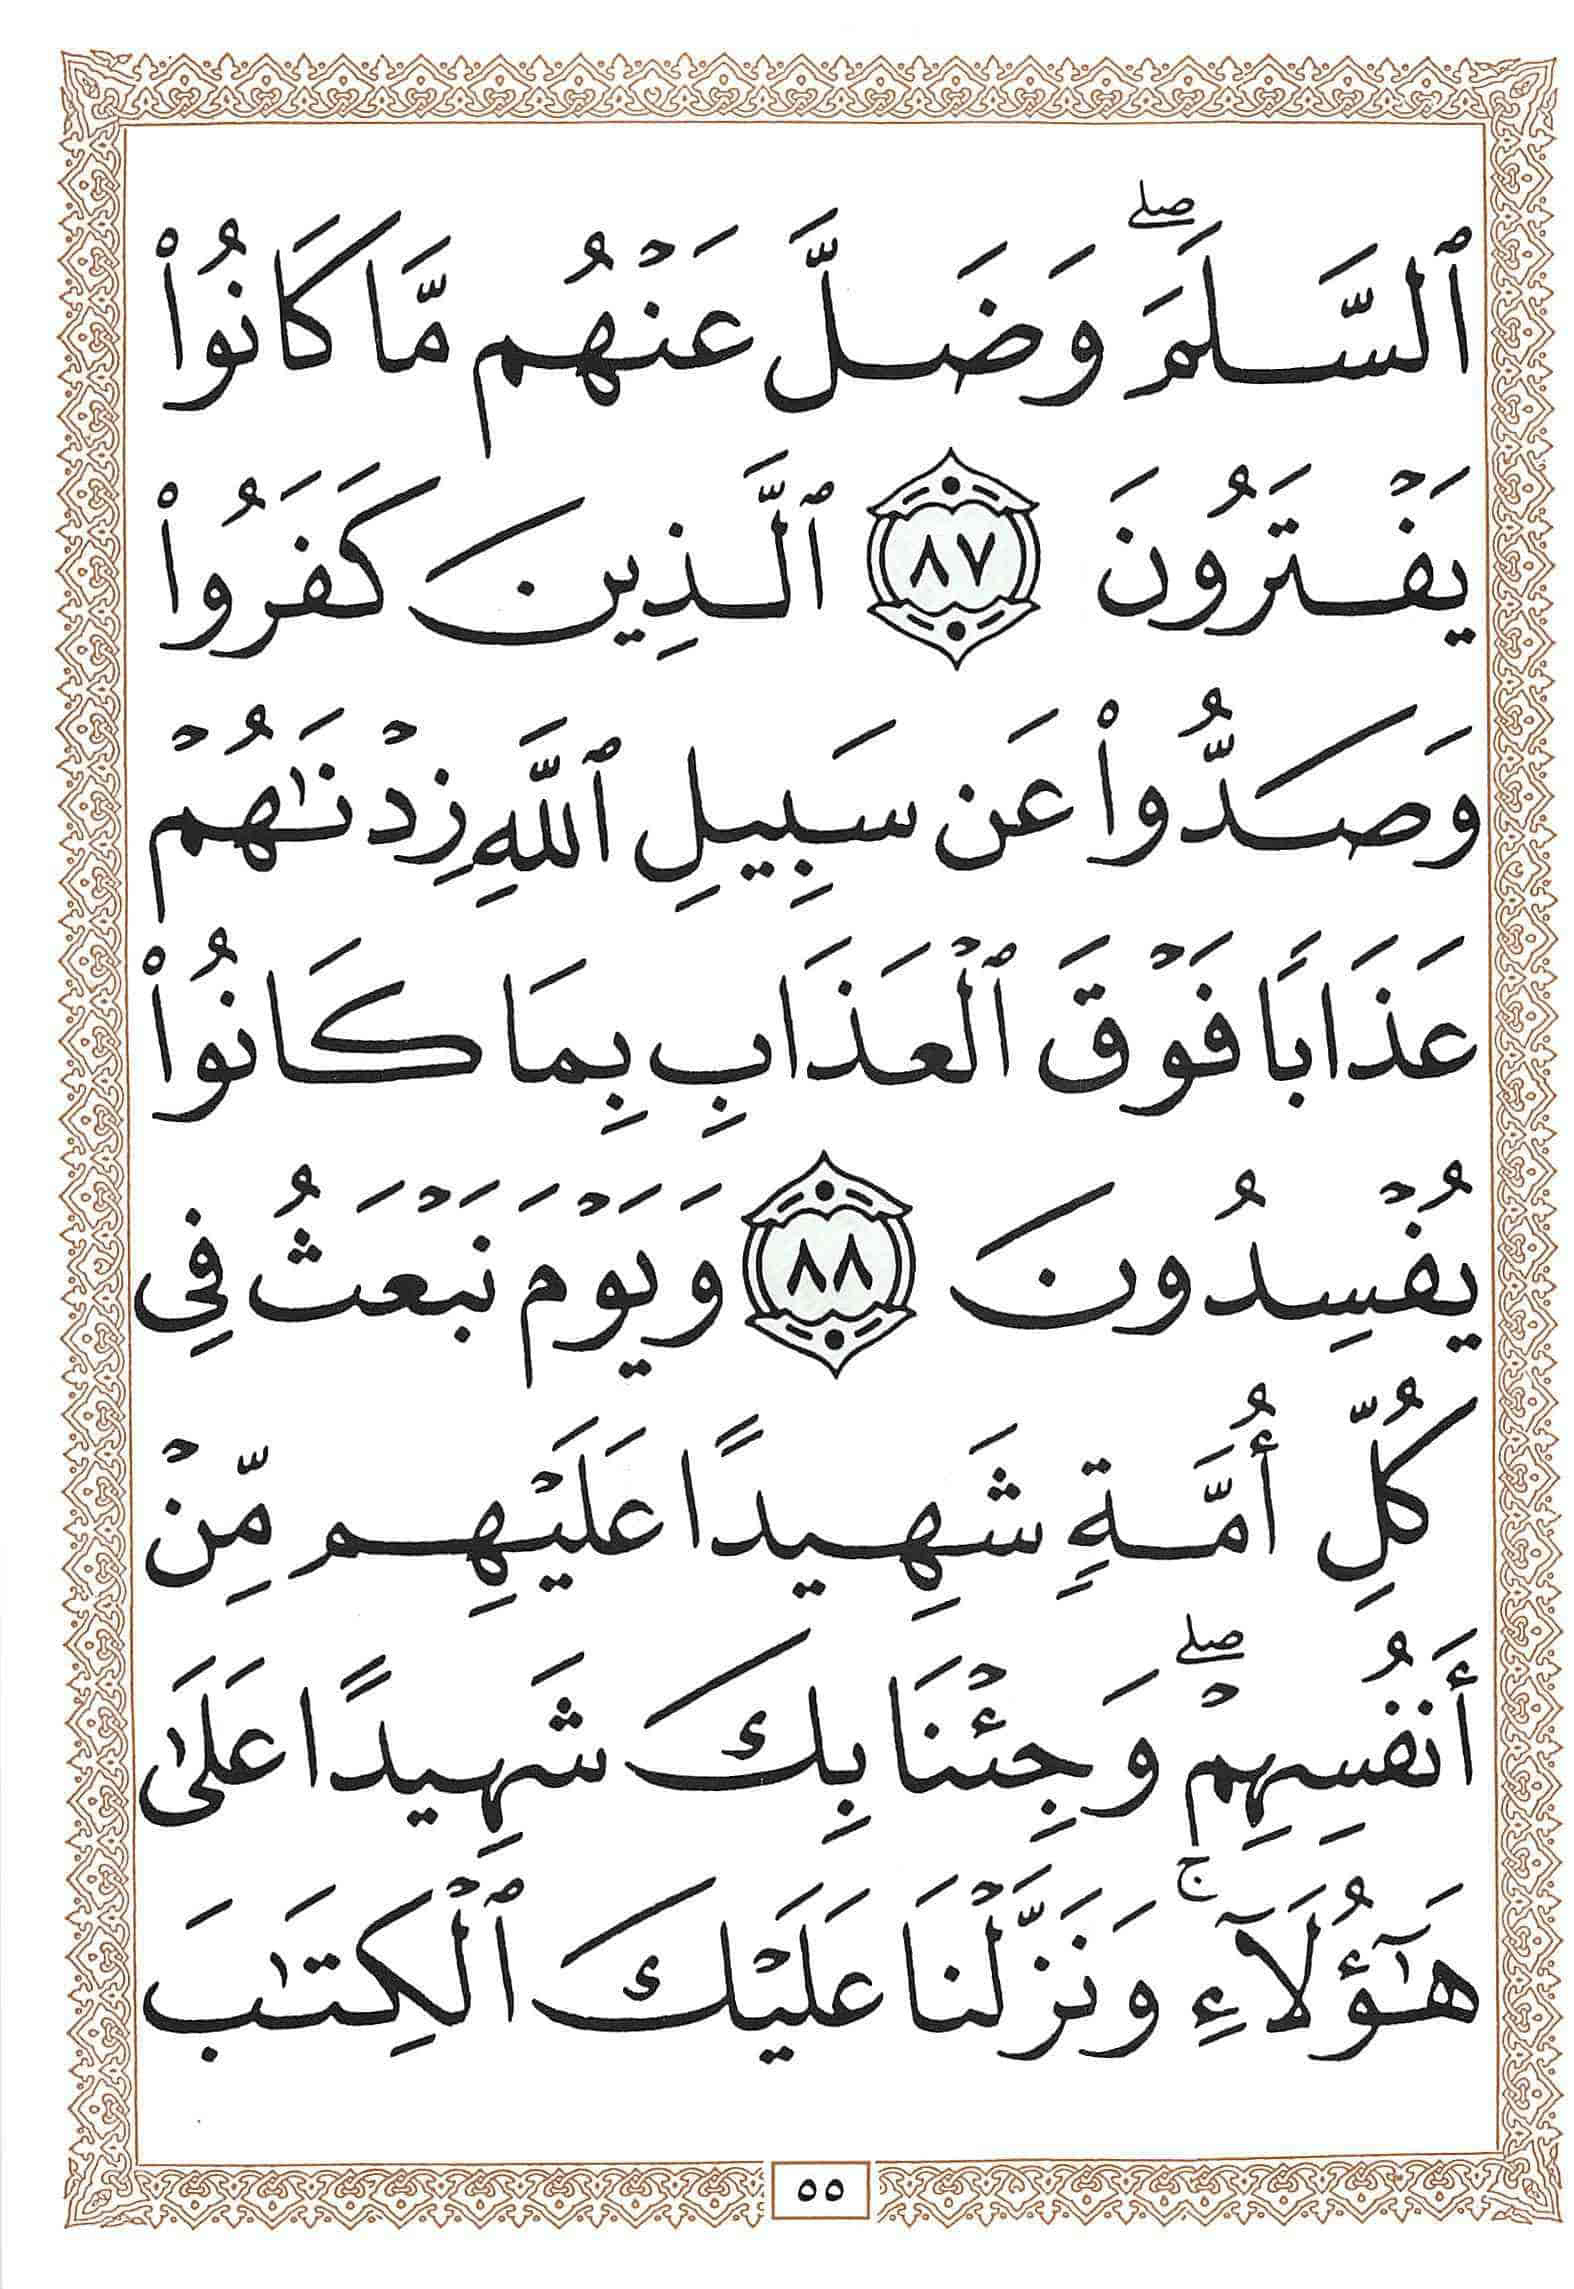 ٱلسَّلَمَ ۖ وَضَلَّ عَنْهُم مَّا كَانُوا۟
يَفْتَرُونَ ٨٧ ٱلَّذِينَ كَفَرُوا۟
وَصَدُّوا۟ عَن سَبِيلِ ٱللَّهِ زِدْنَـٰهُمْ
عَذَابًا فَوْقَ ٱلْعَذَابِ بِمَا كَانُوا۟
يُفْسِدُونَ ٨٨ وَيَوْمَ نَبْعَثُ فِي
كُلِّ أُمَّةٍ شَهِيدًا عَلَيْهِم مِّنْ
أَنفُسِهِمْ ۖ وَجِئْنَا بِكَ شَهِيدًا عَلَىٰ
هَـٰٓؤُلَآءِ ۚ وَنَزَّلْنَا عَلَيْكَ ٱلْكِتَـٰبَ
٥٥